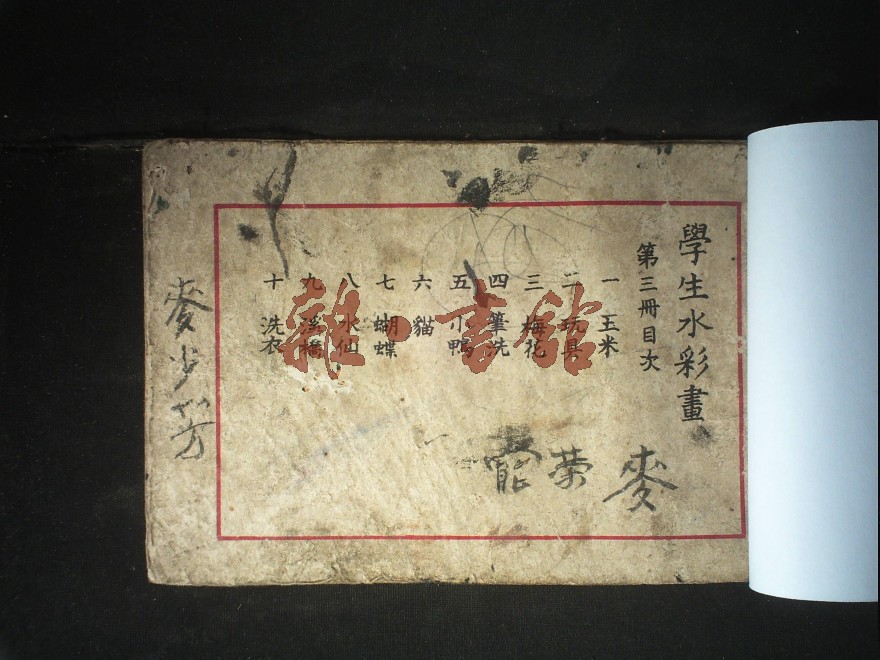 學生水彩畫
第三冊目次
一 玉米
二 玩具
三 梅花
四 筆洗
五 小鴨
六 貓
七 蝴蝶
八 水仙
九 溪橋
十 洗衣
雜·書館
麥荣
麥少芳